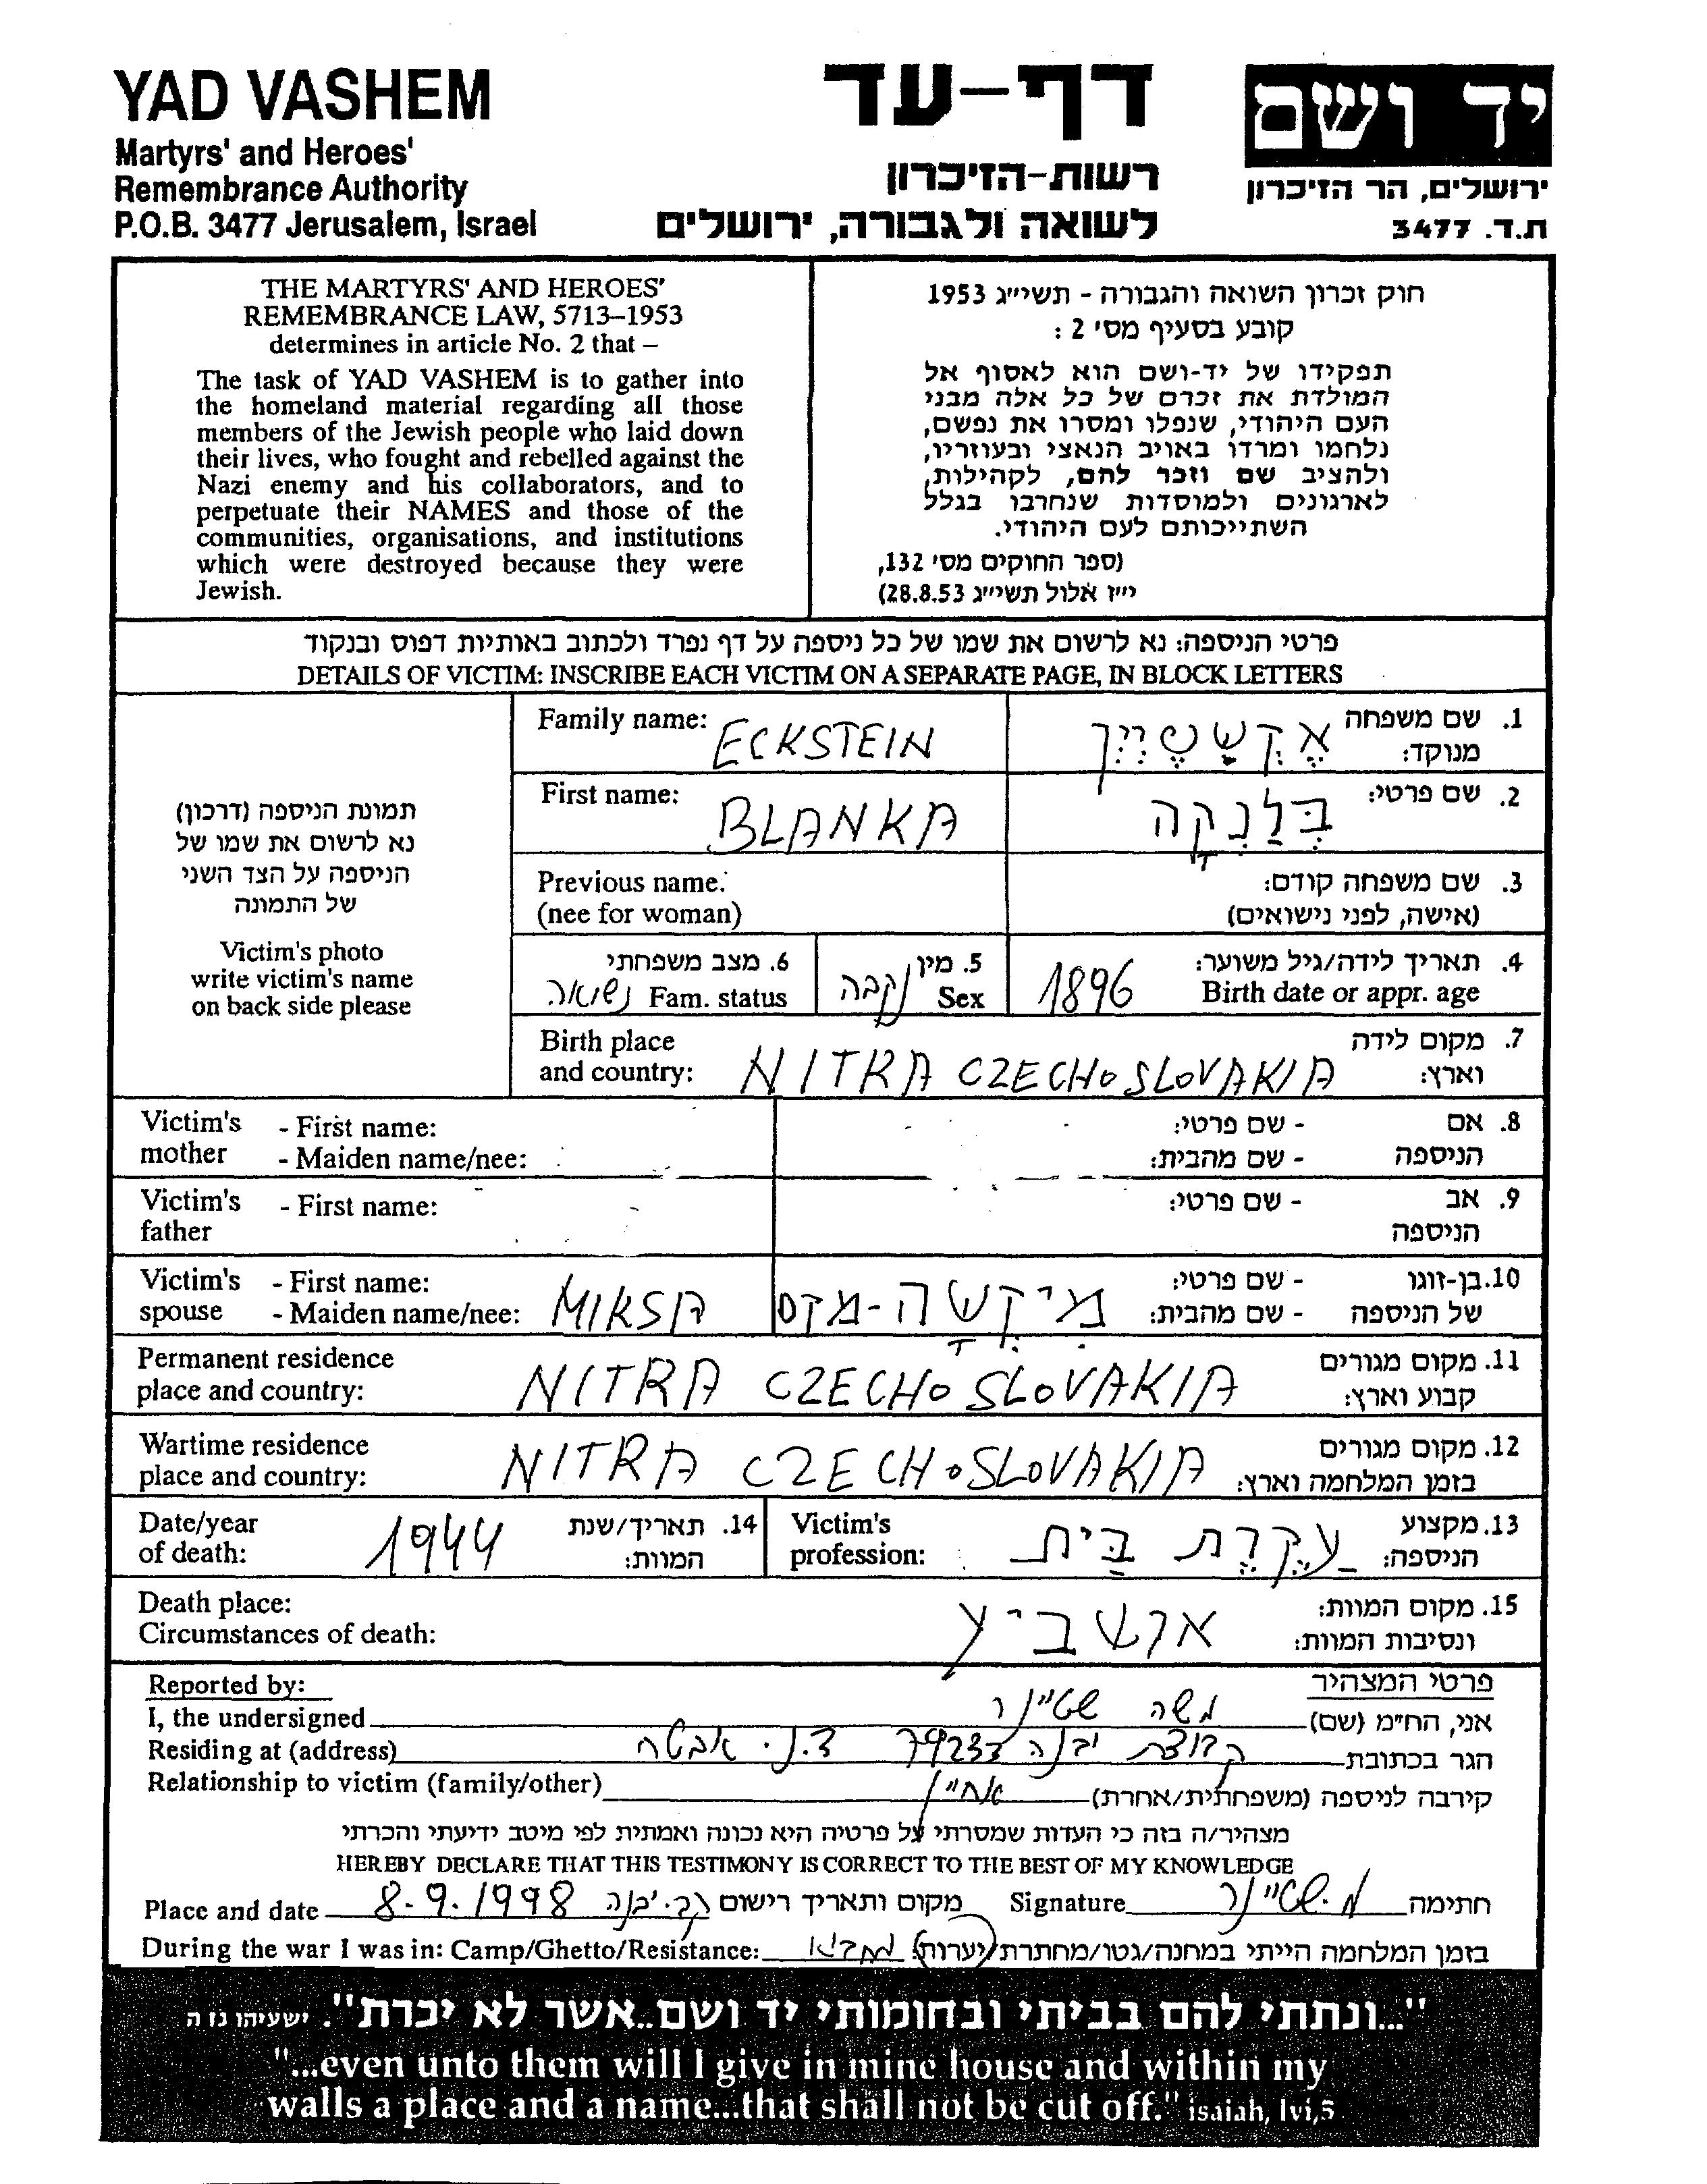 YAD VASHEM
Martyrs' and Heroes'
Remembrance Authority
P.O.B. 3477 Jerusalem, Israel
דף-עד
רשות-הזיכרון
לשואה ולגבורה, ירושלים
יד ושם
ירושלים, הר הזיכרון
ת.ד. 3477
THE MARTYRS' AND HEROES'
REMEMBRANCE LAW, 5713–1953
determines in article No. 2 that –
The task of YAD VASHEM is to gather into
the homeland material regarding all those
members of the Jewish people who laid down
their lives, who fought and rebelled against the
Nazi enemy and his collaborators, and to
perpetuate their NAMES and those of the
communities, organisations, and institutions
which were destroyed because they were
Jewish.
חוק זכרון השואה והגבורה - תשי"ג 1953
קובע בסעיף מס' 2 :
תפקידו של יד-ושם הוא לאסוף אל
המולדת את זכרם של כל אלה מבני
העם היהודי, שנפלו ומסרו את נפשם,
נלחמו ומרדו באויב הנאצי ובעוזריו,
ולהציב שם וזכר להם, לקהילות,
לארגונים ולמוסדות שנחרבו בגלל
השתייכותם לעם היהודי.
(ספר החוקים מס' 132,
י"ז אלול תשי"ג 28.8.53)
פרטי הניספה: נא לרשום את שמו של כל ניספה על דף נפרד ולכתוב באותיות דפוס ובנקוד
DETAILS OF VICTIM: INSCRIBE EACH VICTIM ON A SEPARATE PAGE, IN BLOCK LETTERS
תמונת הניספה (דרכון)
נא לרשום את שמו של
הניספה על הצד השני
של התמונה
Victim's photo
write victim's name
on back side please
Family name: ECKSTEIN
1. שם משפחה מנוקד: אֶקְשְׁטֶיְין
First name: BLANKA
2. שם פרטי: בְּלַנְקָה
Previous name:
(nee for woman)
3. שם משפחה קודם:
(אישה, לפני נישואים)
4. תאריך לידה/גיל משוער:
Birth date or appr. age 1896
5. מין Sex נקבה
6. מצב משפחתי
Fam. status נשואה
Birth place
and country: NITRA CZECHOSLOVAKIA
7. מקום לידה
וארץ:
Victim's mother - First name:
- Maiden name/nee:
8. אם - שם פרטי:
הניספה - שם מהבית:
Victim's father - First name:
9. אב - שם פרטי:
הניספה
Victim's - First name:
spouse - Maiden name/nee: MIKSA
10. בן-זוגו - שם פרטי:
של הניספה - שם מהבית: מִיקְשָה-מקס
Permanent residence
place and country: NITRA CZECHOSLOVAKIA
11. מקום מגורים
קבוע וארץ:
Wartime residence
place and country: NITRA CZECHOSLOVAKIA
12. מקום מגורים
בזמן המלחמה וארץ:
Date/year
of death: 1944
14. תאריך/שנת
המוות:
Victim's
profession: עֲקֶרֶת בַּיִת
13. מקצוע
הניספה:
Death place:
Circumstances of death:
15. מקום המוות:
ונסיבות המוות: אושביץ
Reported by:
פרטי המצהיר
I, the undersigned משה שטיינר אני, הח"מ (שם)
Residing at (address) קבוצת יבנה 79233 ד.נ. אבטח הגר בכתובת
Relationship to victim (family/other) אחיין קירבה לניספה (משפחתית/אחרת)
מצהיר/ה בזה כי העדות שמסרתי על פרטיה היא נכונה ואמתית לפי מיטב ידיעתי והכרתי
HEREBY DECLARE THAT THIS TESTIMONY IS CORRECT TO THE BEST OF MY KNOWLEDGE
Place and date 8.9.1998 קב. יבנה מקום ותאריך רישום Signature מ. שטיינר חתימה
During the war I was in: Camp/Ghetto/Resistance: מחבוא בזמן המלחמה הייתי במחנה/גטו/מחתרת/יערות:
"...ונתתי להם בביתי ובחומותי יד ושם..אשר לא יכרת". ישעיהו נו ה
"...even unto them will I give in mine house and within my
walls a place and a name...that shall not be cut off." isaiah, lvi,5